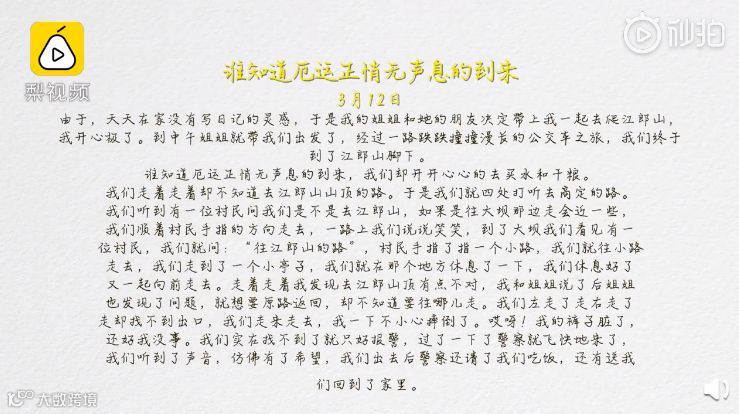 梨视频
秒拍
谁知道厄运正悄无声息的到来
3月12日
由于，天天在家没有写日记的灵感，于是我的姐姐和她的朋友决定带上我一起去爬江郎山，
我开心极了。到中午姐姐就带我们出发了，经过一路跌跌撞撞漫长的公交车之旅，我们终于
到了江郎山脚下。
谁知道厄运正悄无声息的到来，我们却开开心心的去买水和干粮。
我们走着走着却不知道去江郎山山顶的路。于是我们就四处打听去高定的路。
我们听到有一位村民问我们是不是去江郎山，如果是往大坝那边走会近一些，
我们顺着村民手指的方向走去，一路上我们说说笑笑，到了大坝我们看见有一
位村民，我们就问：“往江郎山的路”，村民手指了指一个小路，我们就往小路
走去，我们走到了一个小亭子，我们就在那个地方休息了一下，我们休息好了
又一起向前走去。走着走着我发现去江郎山顶有点不对，我和姐姐说了后姐姐
也发现了问题，就想要原路返回，却不知道要往哪儿走。我们左走了走右走了
走却找不到出口，我们走来走去，我一下不小心摔倒了。哎呀！我的裤子脏了，
还好我没事。我们实在找不到了就只好报警，过了一下了警察就飞快地来了，
我们听到了声音，仿佛有了希望，我们出去后警察还请了我们吃饭，还有送我
们回到了家里。
大数跨境